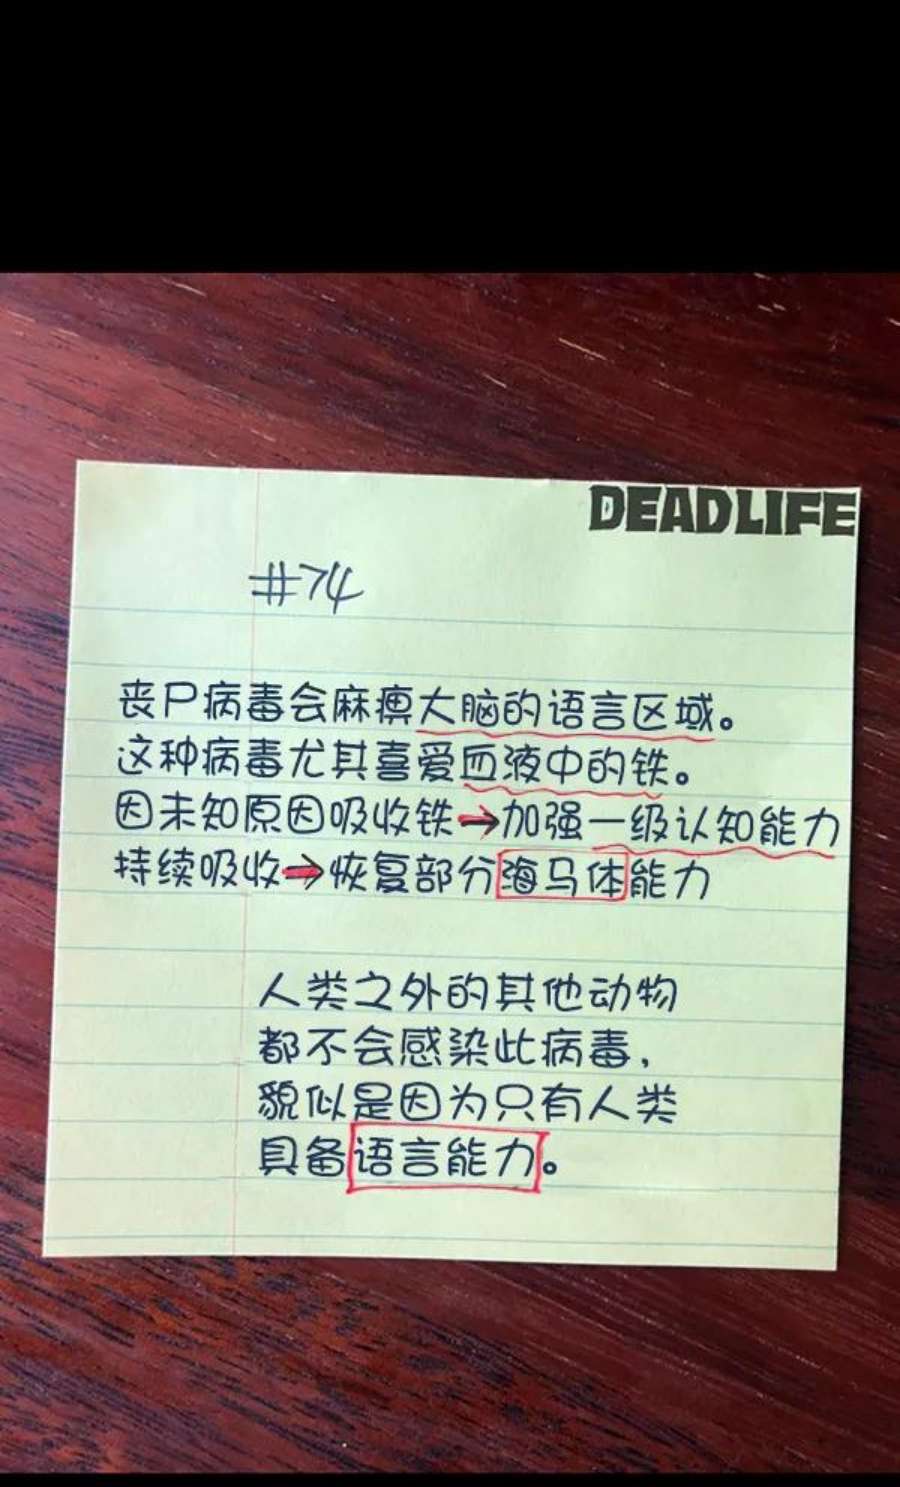 DEADLIFE
#74
丧尸病毒会麻痹大脑的语言区域。
这种病毒尤其喜爱血液中的铁。
因未知原因吸收铁→加强一级认知能力
持续吸收→恢复部分海马体能力
人类之外的其他动物
都不会感染此病毒，
貌似是因为只有人类
具备语言能力。